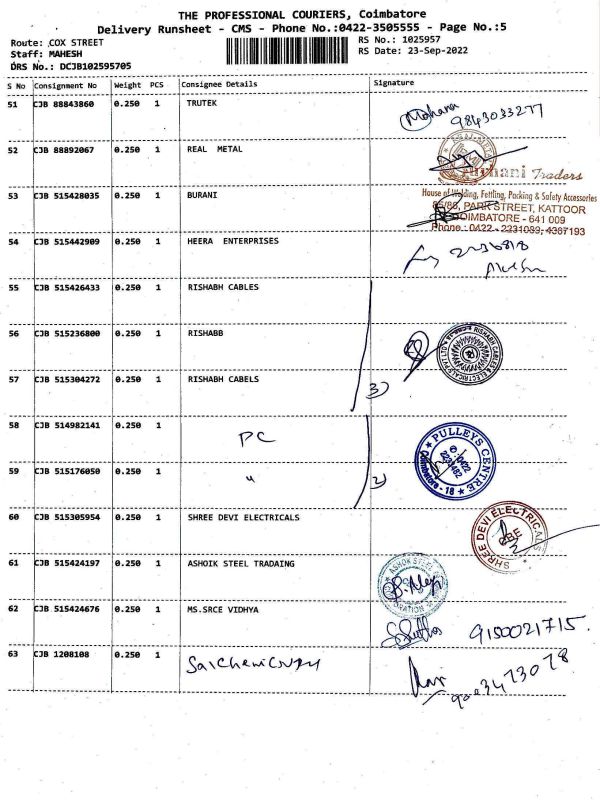 THE PROFESSIONAL COURIERS, Coimbatore
Delivery Runsheet - CMS - Phone No.:0422-3505555 - Page No.:5
Route: COX STREET
RS No.: 1025957
Staff: MAHESH
RS Date: 23-Sep-2022
DRS No.: DCJB102595705
S No Consignment No Weight PCS Consignee Details Signature
51 CJB 88843860 0.250 1 TRUTEK
Mohana
9843033277
52 CJB 88892067 0.250 1 REAL METAL
Burhani Traders
House of Welding, Fettling, Packing & Safety Accessories
53 CJB 515428035 0.250 1 BURANI
PARK STREET, KATTOOR
COIMBATORE - 641 009
Phone : 0422 - 2231089, 4387193
54 CJB 515442909 0.250 1 HEERA ENTERPRISES
2236818
55 CJB 515426433 0.250 1 RISHABH CABLES
56 CJB 515236800 0.250 1 RISHABB
RISHABH CABLES
57 CJB 515304272 0.250 1 RISHABH CABELS
3)
58 CJB 514982141 0.250 1 PC
PULLEYS CENTRE
Coimbatore - 18
59 CJB 515176050 0.250 1 "
2)
60 CJB 515305954 0.250 1 SHREE DEVI ELECTRICALS
SHREE DEVI ELECTRICALS
CBE
61 CJB 515424197 0.250 1 ASHOIK STEEL TRADAING
62 CJB 515424676 0.250 1 MS.SRCE VIDHYA
9150021715.
63 CJB 1208108 0.250 1